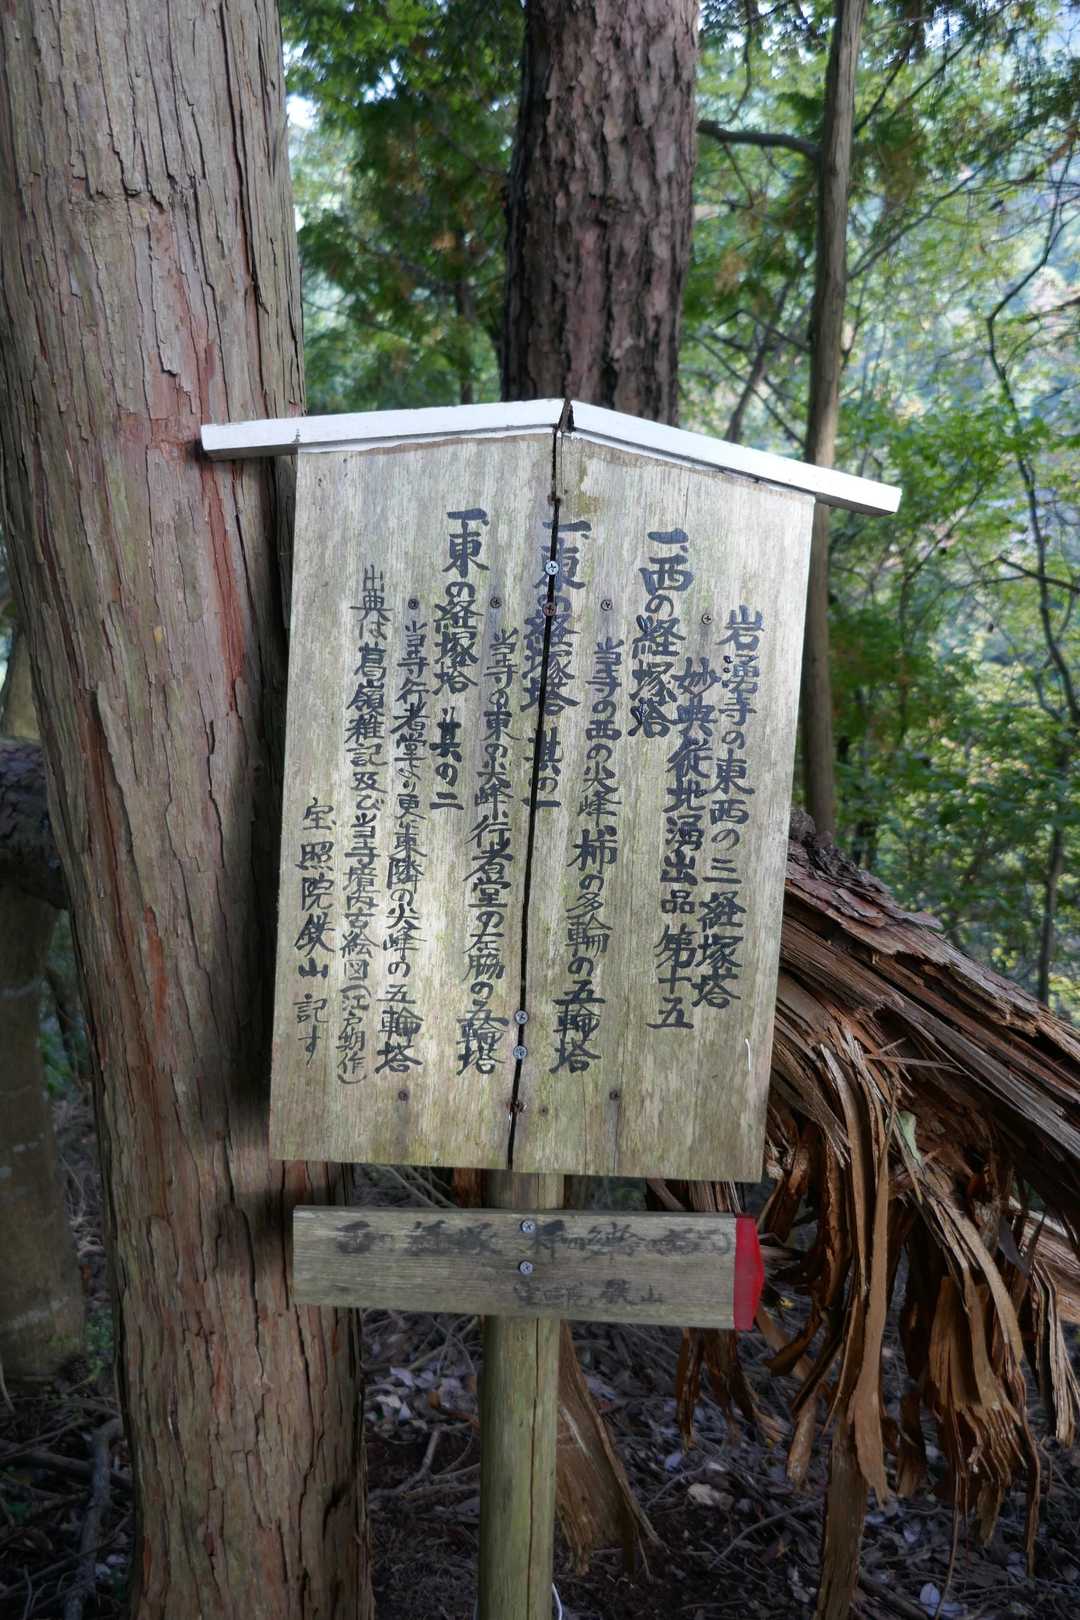 岩湧寺の東西の三経塚塔
妙典従地湧出品第十五
一、西の経塚塔
当寺の西の尖峰、柿の多輪の五輪塔
一、東の経塚塔 其の一
当寺の東の尖峰、行者堂の左脇の五輪塔
一、東の経塚塔 其の二
当寺行者堂より更に東隣の尖峰の五輪塔
出典は葛嶺雑記及び当寺境内古絵図(江戸期作)
宝照院鉄山 記す